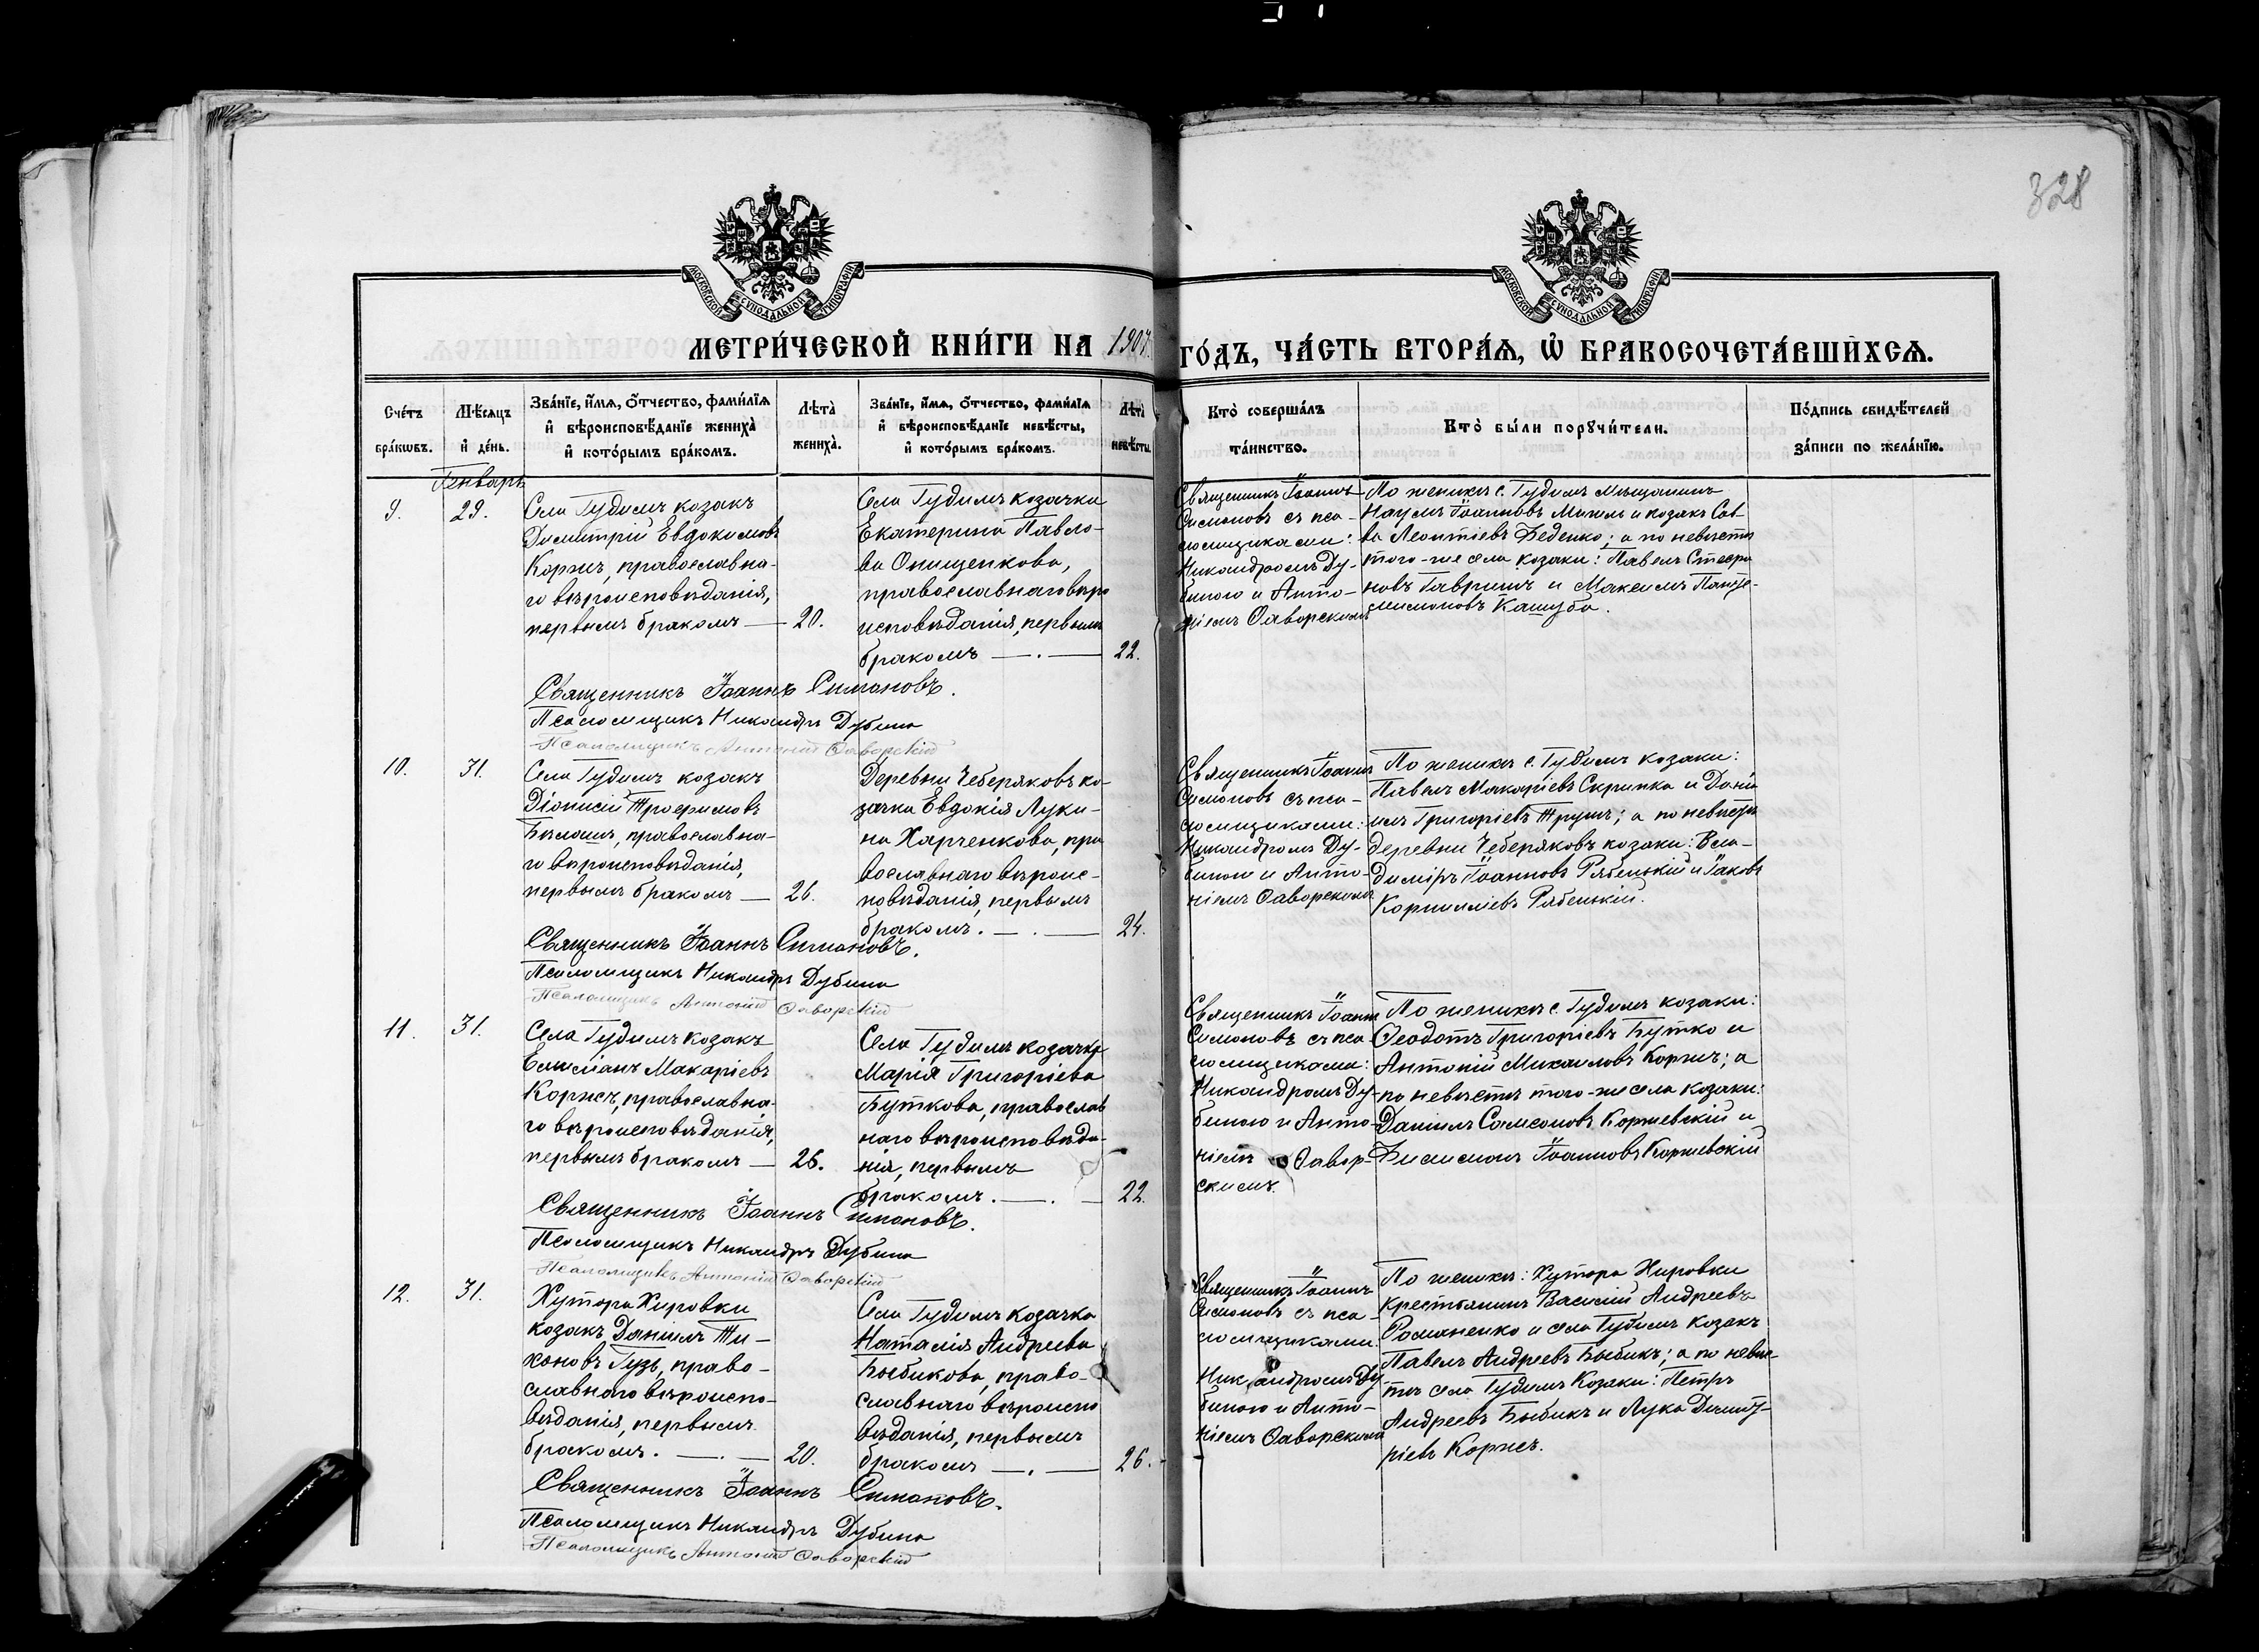 328
МОСКОВСКОЙ СѴНОДАЛЬНОЙ ТИПОГРАФІИ
МОСКОВСКОЙ СѴНОДАЛЬНОЙ ТИПОГРАФІИ
МЕТРИ́ЧЕСКОЙ КНИ́ГИ НА 1907. ГО́ДЪ, ЧА́СТЬ ВТОРА́Я, Ѡ҆ БРАКОСОЧЕТА́ВШИХСЯ.
Сче́тъ бра́кѡвъ.
Мѣ́сяцъ и҆ де́нь.
Зва́нїе, и҆́мя, ѻ҆́тчество, фами́лїя и҆ вѣроисповѣ́данїе жениха̀ и҆ кото́рымъ бра́комъ.
Лѣта̀ жениха̀.
Зва́нїе, и҆́мя, ѻ҆́тчество, фами́лїя и҆ вѣроисповѣ́данїе невѣ́сты, и҆ кото́рымъ бра́комъ.
Лѣта̀ невѣ́сты.
Кто̀ соверша́лъ та́инство.
Кто̀ бы́ли порꙋчи́тели.
По́дпись свидѣ́телей за́писи по жела́нїю.
Генварь
9.
29.
Села Гудимъ козакъ
Димитрій Евдокимовъ
Коржъ, православна-
го вѣроисповѣданія,
первымъ бракомъ — 20.
Села Гудимъ козачка
Екатерина Павло-
ва Онищенкова,
православнаго вѣро
исповѣданія, первымъ
бракомъ —.— 22.
Священникъ Іоаннъ
Симоновъ съ пса-
ломщиками:
Никандромъ Ду-
биною и Анто-
ніемъ Саворскимъ
По женихѣ с. Гудимъ мѣщанинъ
Наумъ Іоанновъ и козакъ Сав-
ва Леонтіевъ Беденко; а по невѣстѣ
того-же села козаки: Павелъ Стефа
новъ Гавришъ и Максимъ
Кашуба.
Священникъ Іоаннъ Симоновъ.
Псаломщикъ Никандръ Дубина
Псаломщикъ Антоній Саворскій
10.
31.
Села Гудимъ козакъ
Діонисій Трофимовъ
Билашъ, православна-
го вѣроисповѣданія,
первымъ бракомъ — 26.
Деревни Чеберяковъ ко-
зачка Евдокія Луки-
на Харченкова, пра
вославнаго вѣроис-
повѣданія, первымъ
бракомъ. —.— 24.
Священникъ Іоаннъ
Симоновъ съ пса-
ломщиками:
Никандромъ Ду-
биною и Анто-
ніемъ Саворскимъ
По женихѣ с. Гудимъ козаки:
Павелъ Макаріевъ Скрипка и Дані
илъ Григоріевъ Трушъ; а по невѣстѣ
деревни Чеберяковъ козаки: Вла-
димиръ Іоанновъ Рябенькій и Іаковъ
Корниліевъ Рябенькій.
Священникъ Іоаннъ Симоновъ.
Псаломщикъ Никандръ Дубина
Псаломщикъ Антоній Саворскій
11.
31.
Села Гудимъ козакъ
Емиліанъ Макаріевъ
Коржъ, православна-
го вѣроисповѣданія,
первымъ бракомъ — 26.
Села Гудимъ козачка
Марія Григоріева
Буткова, православ
наго вѣроисповѣда-
нія, первымъ
бракомъ. —.— 22.
Священникъ Іоаннъ
Симоновъ съ пса
ломщиками:
Никандромъ Ду-
биною и Анто-
ніемъ Савор-
скимъ.
По женихѣ с. Гудимъ козаки:
Ѳеодотъ Григоріевъ Бутко и
Антоній Михаиловъ Коржъ; а
по невѣстѣ того-же села козаки:
Даніилъ Самсоновъ Коржевскій и
Іоанновъ Коржевскій
Священникъ Іоаннъ Симоновъ.
Псаломщикъ Никандръ Дубина
Псаломщикъ Антоній Саворскій
12.
31.
Хутора Хировки
козакъ Даніилъ Ти-
хоновъ Гузь, право-
славнаго вѣроиспо-
вѣданія, первымъ
бракомъ. —.— 20.
Села Гудимъ козачка
Наталія Андреева
Быбикова, право-
славнаго вѣроиспо
вѣданія, первымъ
бракомъ —.— 26.
Священникъ Іоаннъ
Симоновъ съ пса-
ломщиками
Никандромъ Ду
биною и Анто-
ніемъ Саворскимъ
По женихѣ: Хутора Хировки
крестьянинъ Василій Андреевъ
Романенко и села Гудимъ козакъ
Павелъ Андреевъ Быбикъ; а по невѣс-
тѣ села Гудимъ козаки: Петръ
Андреевъ Быбикъ и Лука Димит-
ріевъ Коржъ.
Священникъ Іоаннъ Симоновъ.
Псаломщикъ Никандръ Дубина
Псаломщикъ Антоній Саворскій